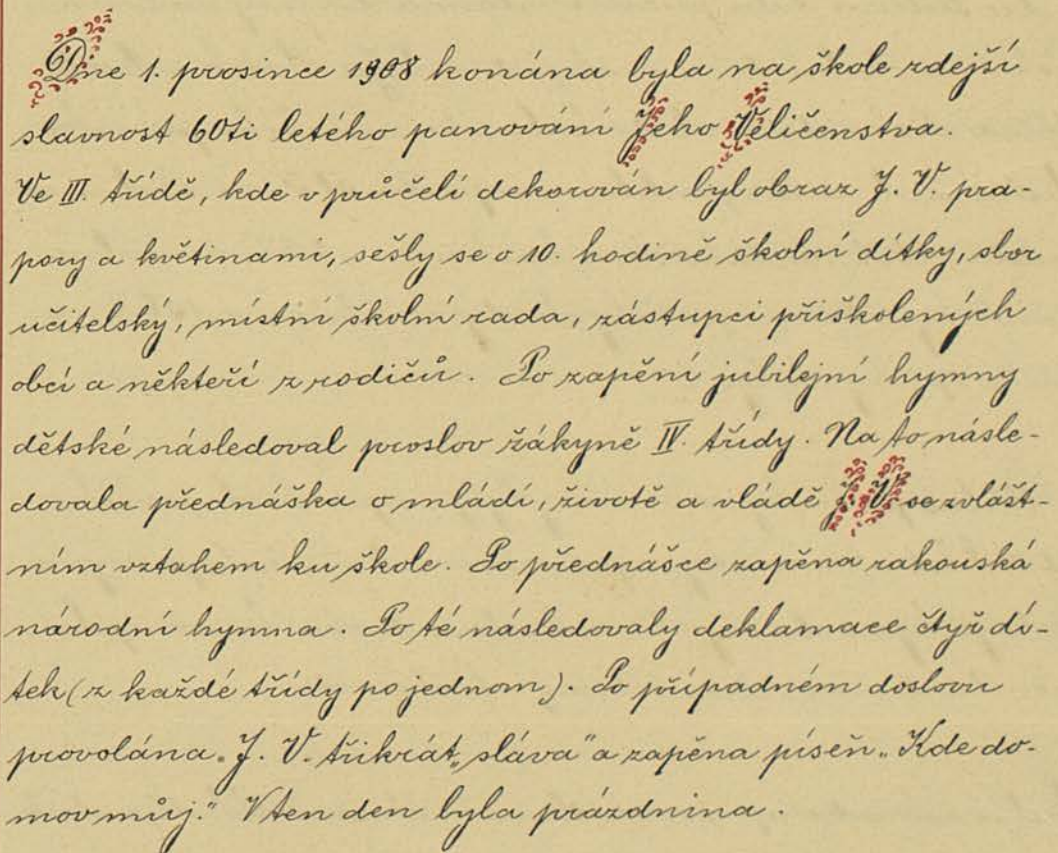 Dne 1. prosince 1908 konána byla na škole zdejší
slavnost 60ti letého panování Jeho Veličenstva.
Ve III. třídě, kde v průčelí dekorován byl obraz J. V. pra-
pory a květinami, sešly se o 10. hodině školní dítky, sbor
učitelský, místní školní rada, zástupci přiškolených
obcí a někteří z rodičů. Po zapění jubilejní hymny
dětské následoval proslov žákyně IV. třídy. Na to násle-
dovala přednáška o mládí, životě a vládě J. V. se zvlášt-
ním vztahem ku škole. Po přednášce zapěna rakouská
národní hymna. Po té následovaly deklamace čtyř dí-
tek (z každé třídy po jednom). Po případném doslovu
provolána „J. V. třikrát „sláva" a zapěna píseň „Kde do-
mov můj." V ten den byla prázdnina.